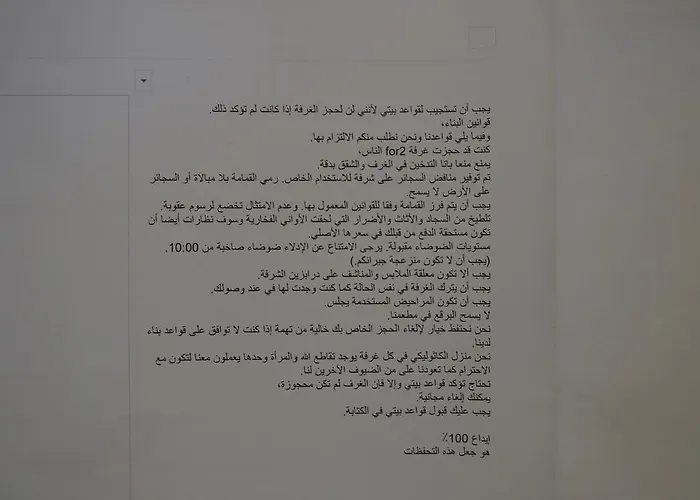 يجب أن تستجيب لقواعد بيتي لأنني لن لحجز الغرفة إذا كانت لم تؤكد ذلك.
قوانين البناء،
وفيما يلي قواعدنا ونحن نطلب منكم الالتزام بها.
كنت قد حجزت غرفة for2 الناس،
يمنع منعا باتا التدخين في الغرف والشقق بدقة.
تم توفير منافض السجائر على شرفة للاستخدام الخاص. رمي القمامة بلا مبالاة أو السجائر
على الأرض لا يسمح.
يجب أن يتم فرز القمامة وفقا للقوانين المعمول بها. وعدم الامتثال تخضع لرسوم عقوبة.
تلطيخ من السجاد والأثاث والأضرار التي لحقت الأواني الفخارية وسوف نظارات أيضا أن
تكون مستحقة الدفع من قبلك في سعرها الأصلي.
مستويات الضوضاء مقبولة. يرجى الامتناع عن الإدلاء ضوضاء صاخبة من 10:00.
(يجب أن لا تكون منزعجة جبرانكم.)
يجب ألا تكون معلقة الملابس والمناشف على درابزين الشرفة.
يجب أن يترك الغرفة في نفس الحالة كما كنت وجدت لها في عند وصولك.
يجب أن تكون المراحيض المستخدمة يجلس.
لا يسمح البرقع في مطعمنا.
نحن نحتفظ خيار لإلغاء الحجز الخاص بك خالية من تهمة إذا كنت لا توافق على قواعد بناء
لدينا.
نحن منزل الكاثوليكي في كل غرفة يوجد تقاطع الله والمرأة وحدها يعملون معنا لتكون مع
الاحترام كما تعودنا على من الضيوف الآخرين لنا.
تحتاج تؤكد قواعد بيتي وإلا فإن الغرف لم تكن محجوزة،
يمكنك إلغاء مجانية.
يجب عليك قبول قواعد بيتي في الكتابة.
إيداع 100٪
هو جعل هذه التحفظات